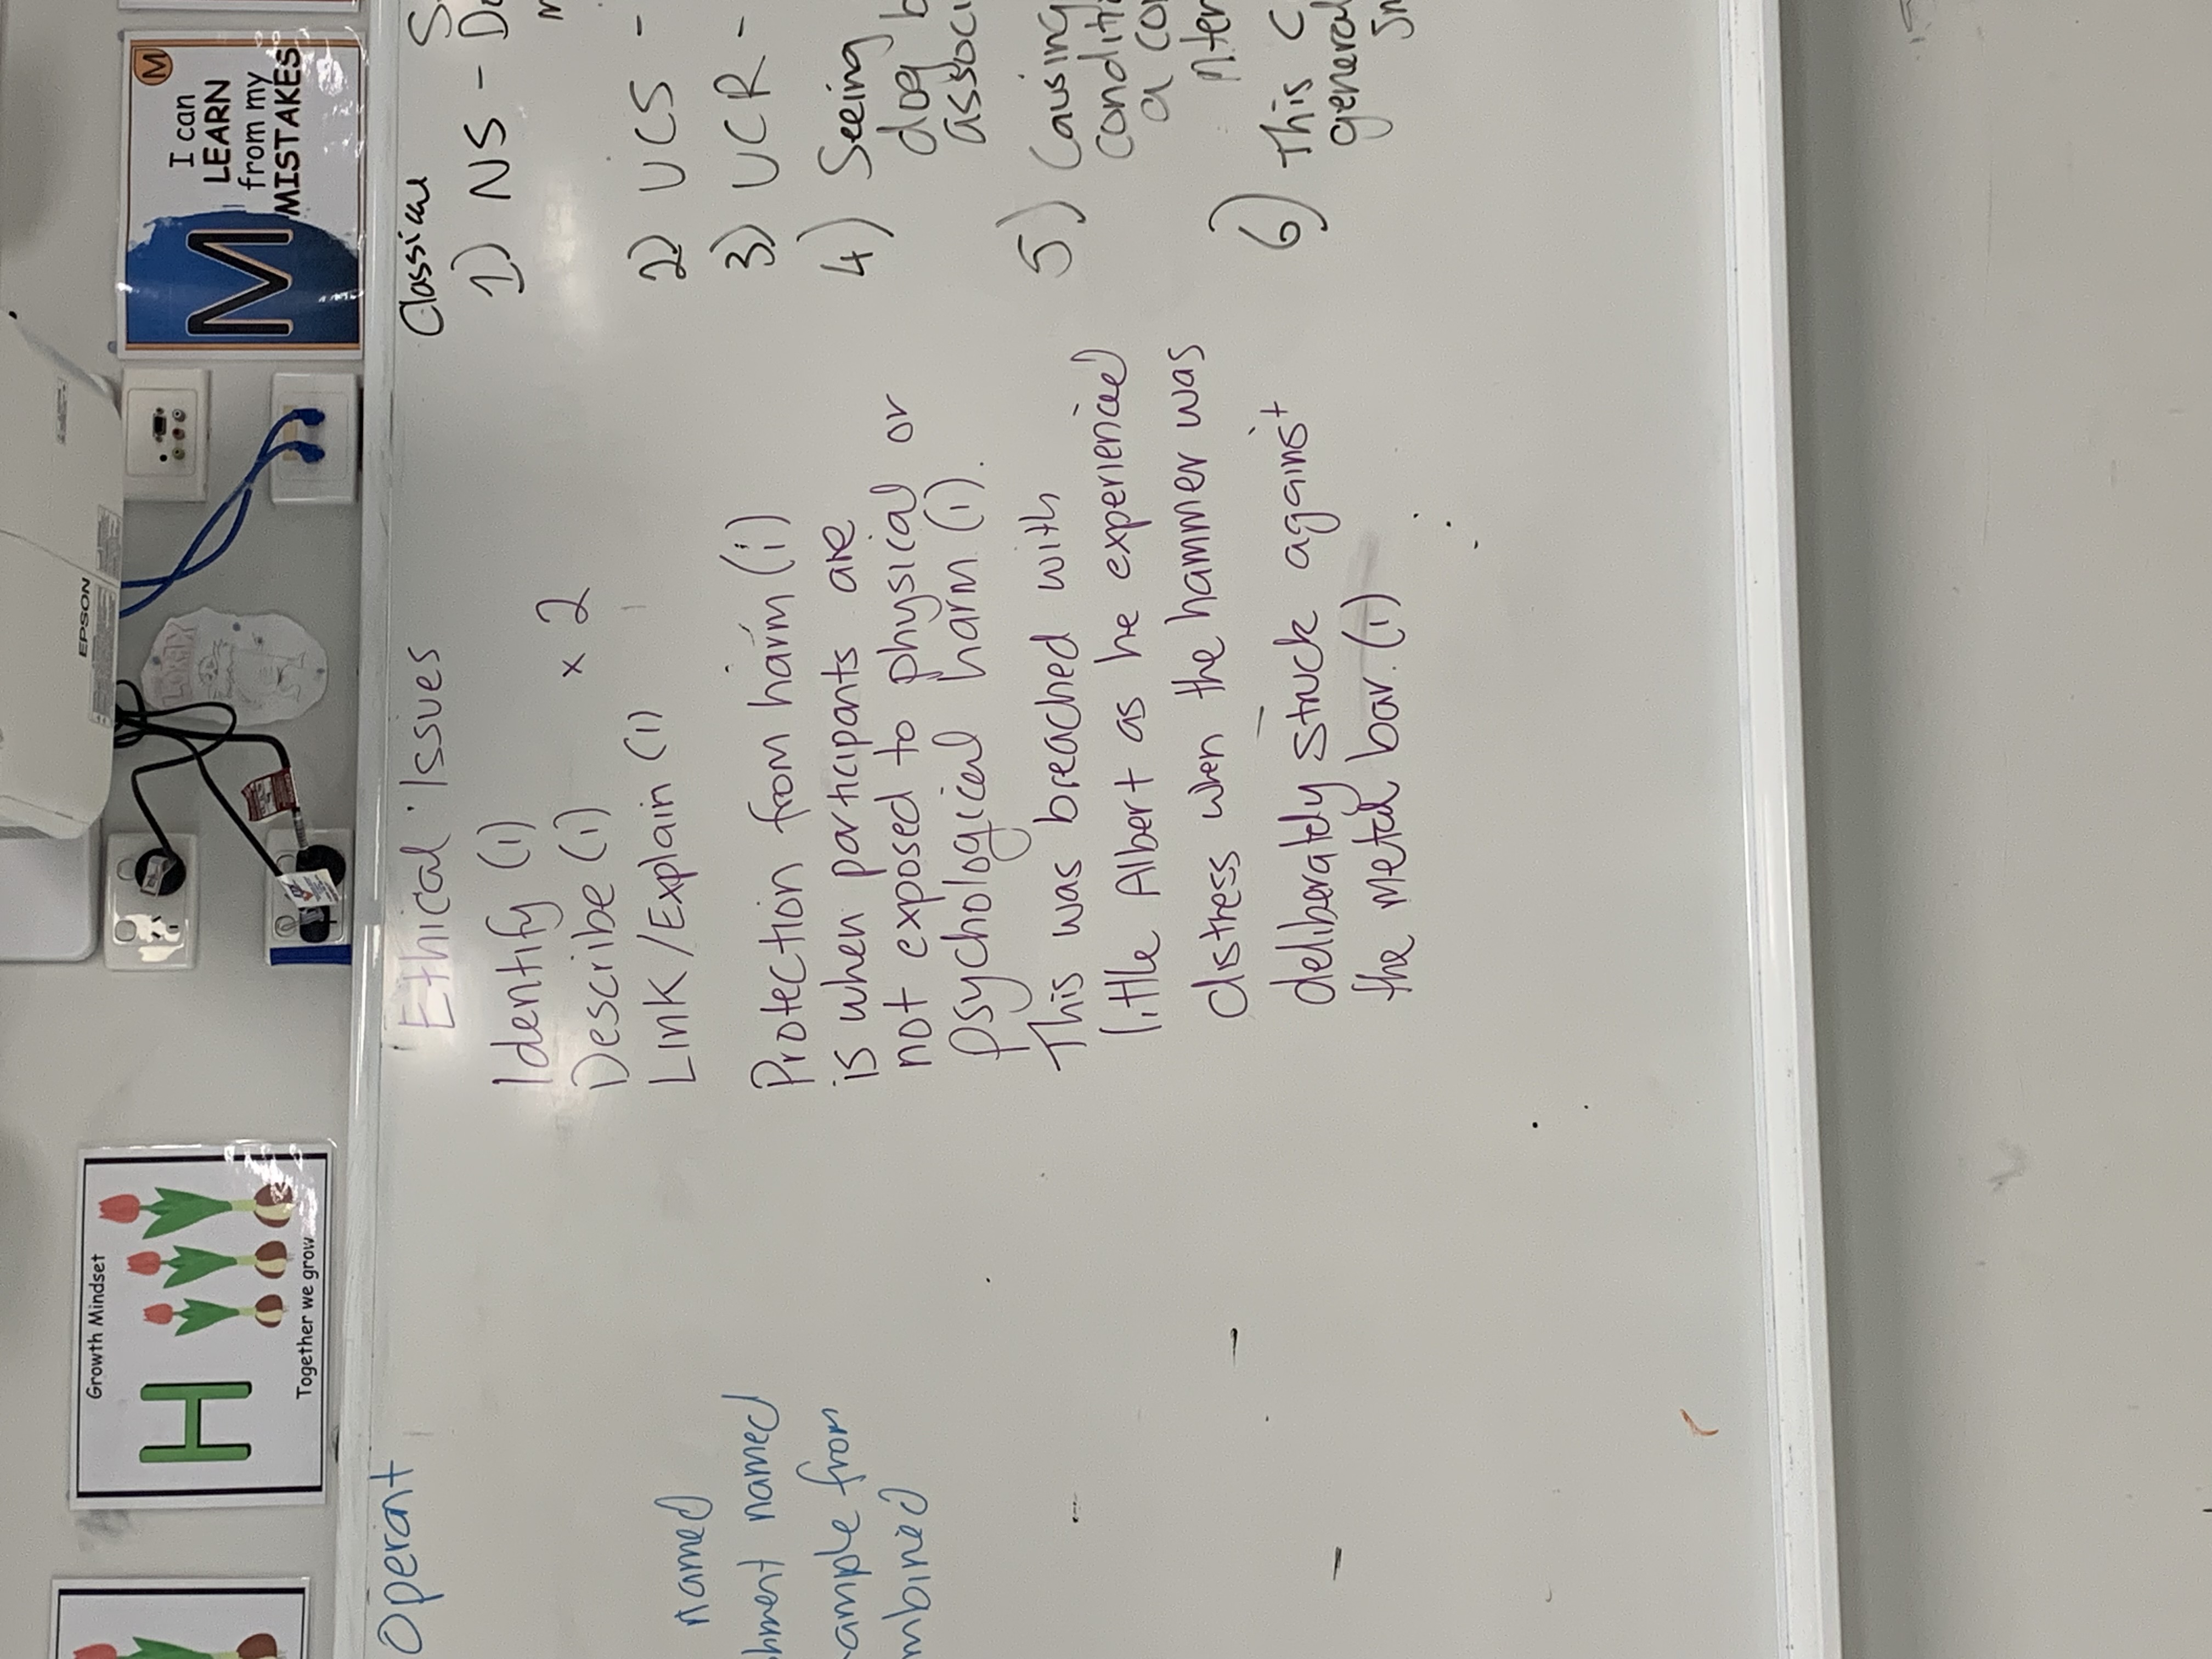 Growth Mindset
H
Together we grow
EPSON
M
I can
LEARN
from my
MISTAKES
M
Operant
named
hment named
ample from
mbined
Ethical Issues
Identify (1)
Describe (1) x 2
Link/Explain (1)
Protection from harm (1)
is when participants are
not exposed to physical or
psychological harm (1).
This was breached with
little Albert as he experienced
distress when the hammer was
deliberately struck against
the metal bar. (1)
Classical
1) NS - D
2) UCS -
3) UCR -
4) Seeing
dog b
associ
5) Causing
conditi
a co
6) This C
general